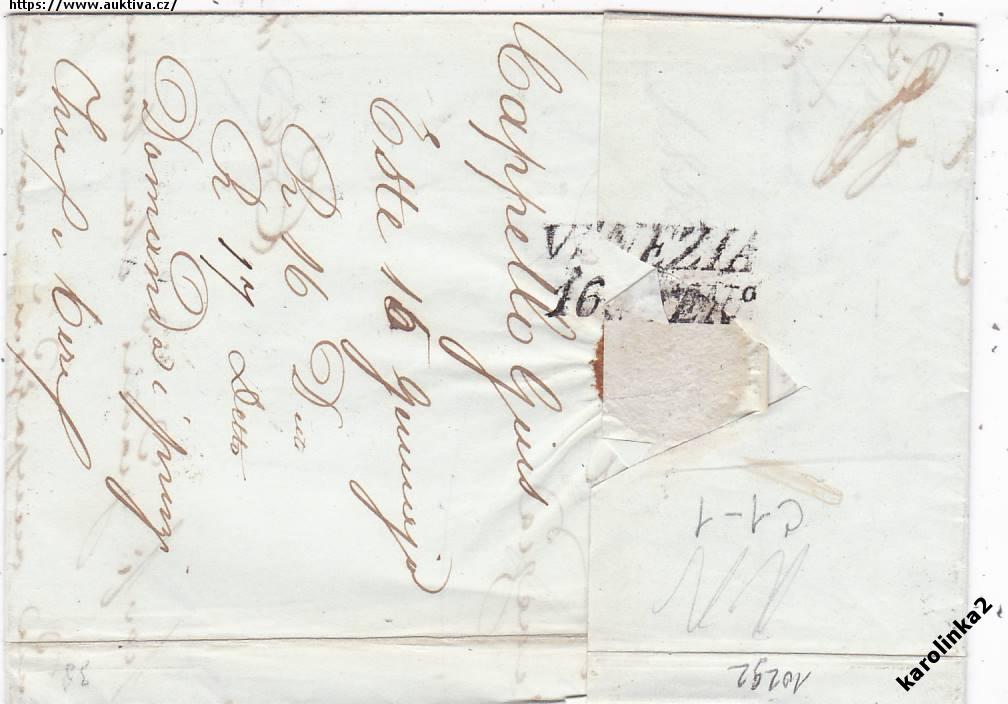 https://www.auktiva.cz/
Cappello Gius
Este 16 Gennajo
R 16 Dto
R 17 Detto
Domanda i prezzi
VENEZIA
16. GEN.º
C1-1
10292
karolinka2